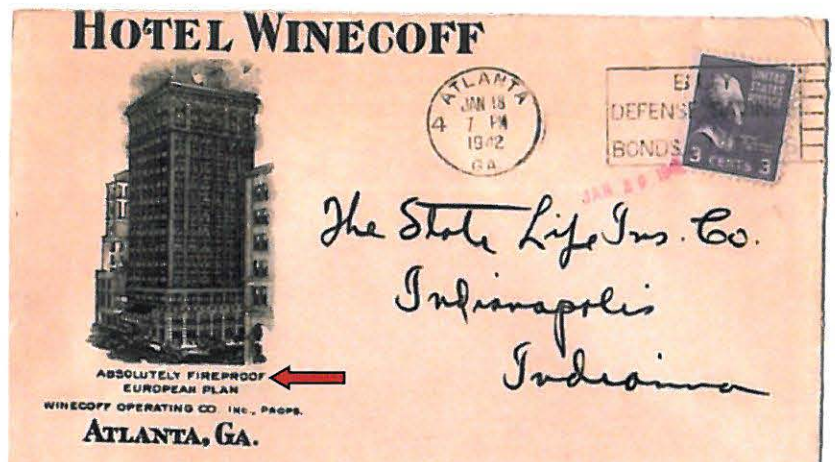 HOTEL WINECOFF
ATLANTA
JAN 18
4 7 PM
1942
GA.
B
DEFENSE
BONDS
UNITED
STATES
3 CENTS 3
JAN
The State Life Ins. Co.
Indianapolis
Indianna
ABSOLUTELY FIREPROOF
EUROPEAN PLAN
WINECOFF OPERATING CO. INC., PROPS.
ATLANTA, GA.